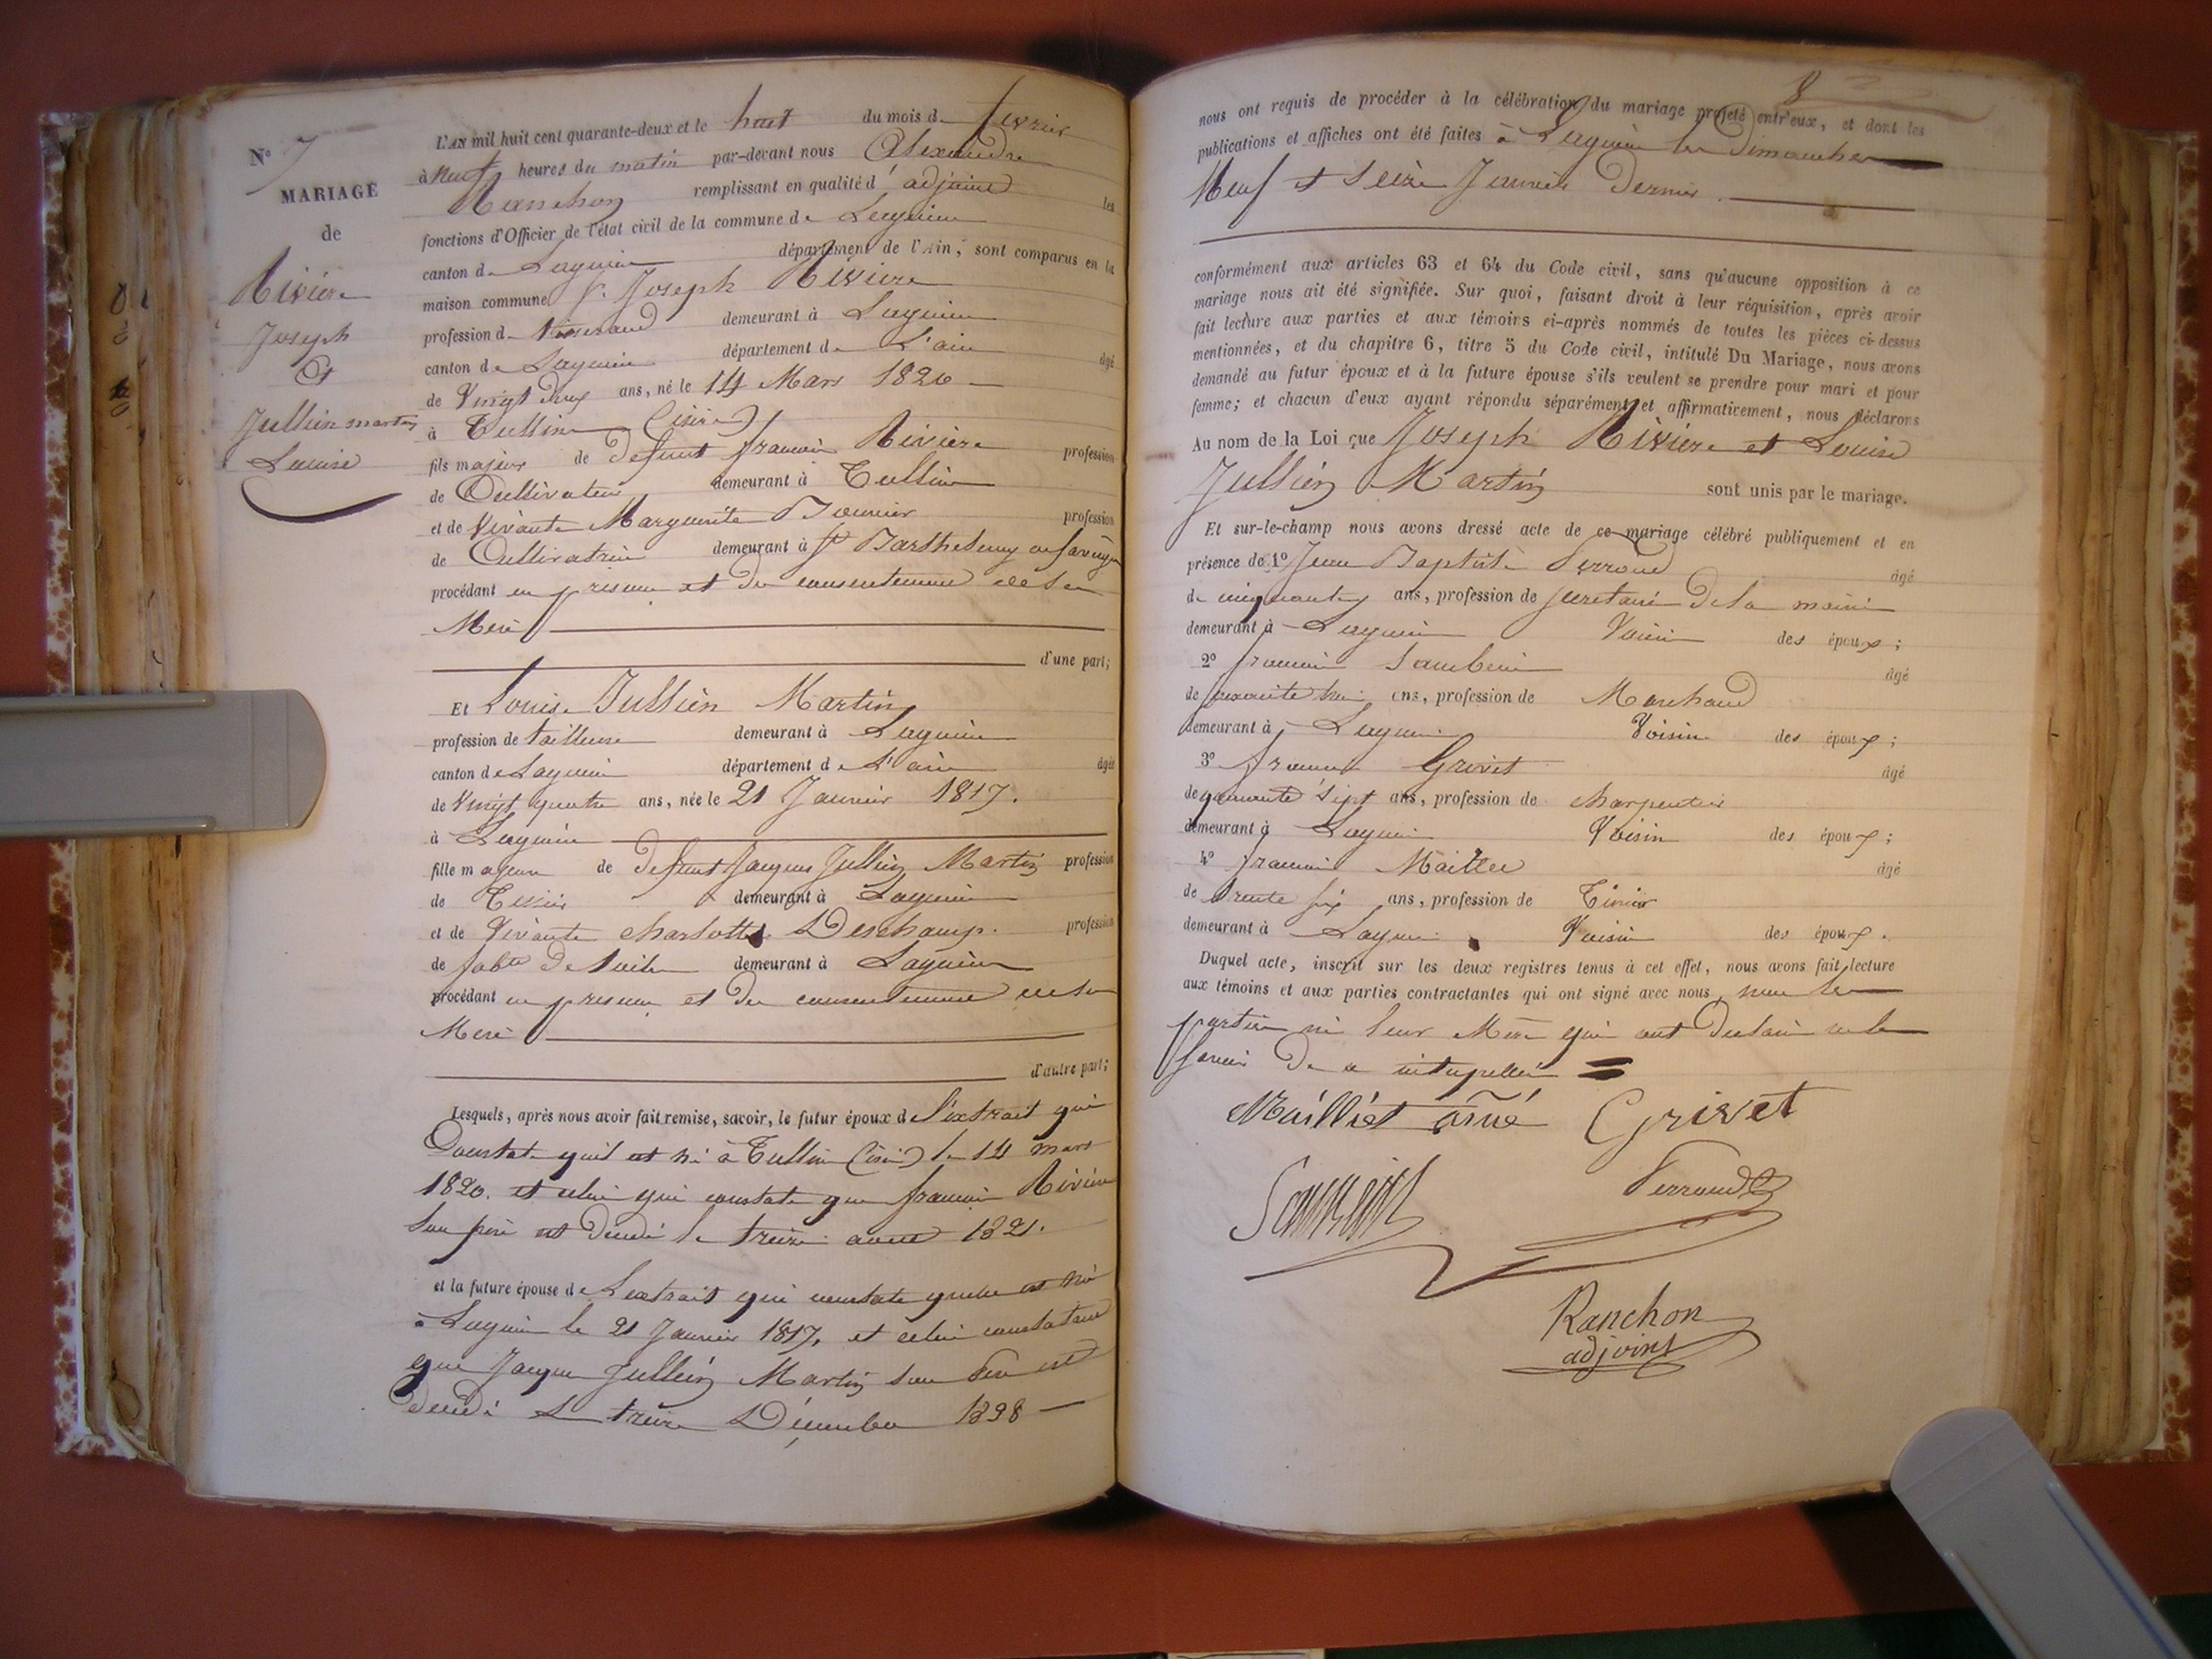 N° 7
MARIAGE
de
Rivière
Joseph
Et
Jullien martin
Louise
L'AN mil huit cent quarante-deux et le huit du mois de fevrier
à neuf heures du matin par-devant nous Alexandre
Ranchon remplissant en qualité d'adjoint les
fonctions d'Officier de l'état civil de la commune de Lagnieu
canton de Lagnieu département de l'Ain, sont comparus en la
maison commune Sr. Joseph Rivière
profession de demeurant à Lagnieu
canton de Lagnieu département de L'ain âgé
de Vingt deux ans, né le 14 Mars 1820
à Tullin (isère)
fils majeur de defunt françois Rivière profession
de Cultivateur demeurant à Tullin
et de Vivante Marguerite profession
de Cultivatrice demeurant à St Barthelemy
procédant en presence et du consentement de sa
Mère
d'une part;
Et Louise Jullien Martin
profession de tailleuse demeurant à Lagnieu
canton de Lagnieu département de L'ain âgée
de Vingt quatre ans, née le 21 Janvier 1817.
à Lagnieu
fille majeure de defunt Jacques Jullien Martin profession
de Tissier demeurant à Lagnieu
et de Vivante charlotte Deschamp. profession
de fabte De toile demeurant à Lagnieu
procédant en presence et du consentement de sa
Mère
d'autre part;
Lesquels, après nous avoir fait remise, savoir, le futur époux de l'extrait qui
Constate quil est né à Tullin (isère) le 14 mars
1820. et celui qui constate que françois Rivière
son père est décédé le treize aout 1821.
et la future épouse de L'extrait qui constate quelle est née
à Lagnieu le 21 Janvier 1817, et celui constatant
que Jacques Jullien Martin son Père est
décédé Le treize Décembre 1838
8
nous ont requis de procéder à la célébration du mariage projeté entr'eux, et dont les
publications et affiches ont été faites à Lagnieu les dimanches
Neuf et Seize Janvier Dernier
conformément aux articles 63 et 64 du Code civil, sans qu'aucune opposition à ce
mariage nous ait été signifiée. Sur quoi, faisant droit à leur réquisition, après avoir
fait lecture aux parties et aux témoins ci-après nommés de toutes les pièces ci-dessus
mentionnées, et du chapitre 6, titre 5 du Code civil, intitulé Du Mariage, nous avons
demandé au futur époux et à la future épouse s'ils veulent se prendre pour mari et pour
femme; et chacun d'eux ayant répondu séparément et affirmativement, nous déclarons
Au nom de la Loi que Joseph Rivière et Louise
Jullien Martin sont unis par le mariage.
Et sur-le-champ nous avons dressé acte de ce mariage célébré publiquement et en
présence de 1° Jean Baptiste Perroud âgé
de cinquante ans, profession de secretaire De la mairie
demeurant à Lagnieu Voisin des époux;
2° françois âgé
de ans, profession de Marchand
demeurant à Lagnieu Voisin des époux;
3° françois Grivet âgé
de quarante sept ans, profession de charpentier
demeurant à Lagnieu Voisin des époux;
4° françois Maillet âgé
de trente six ans, profession de
demeurant à Lagnieu Voisin des époux.
Duquel acte, inscrit sur les deux registres tenus à cet effet, nous avons fait lecture
aux témoins et aux parties contractantes qui ont signé avec nous, non les
parties ni leur Mère qui ont Déclaré ne le
savoir De ce interpellés
Mailliet Grivet
Perroud
Ranchon
adjoint